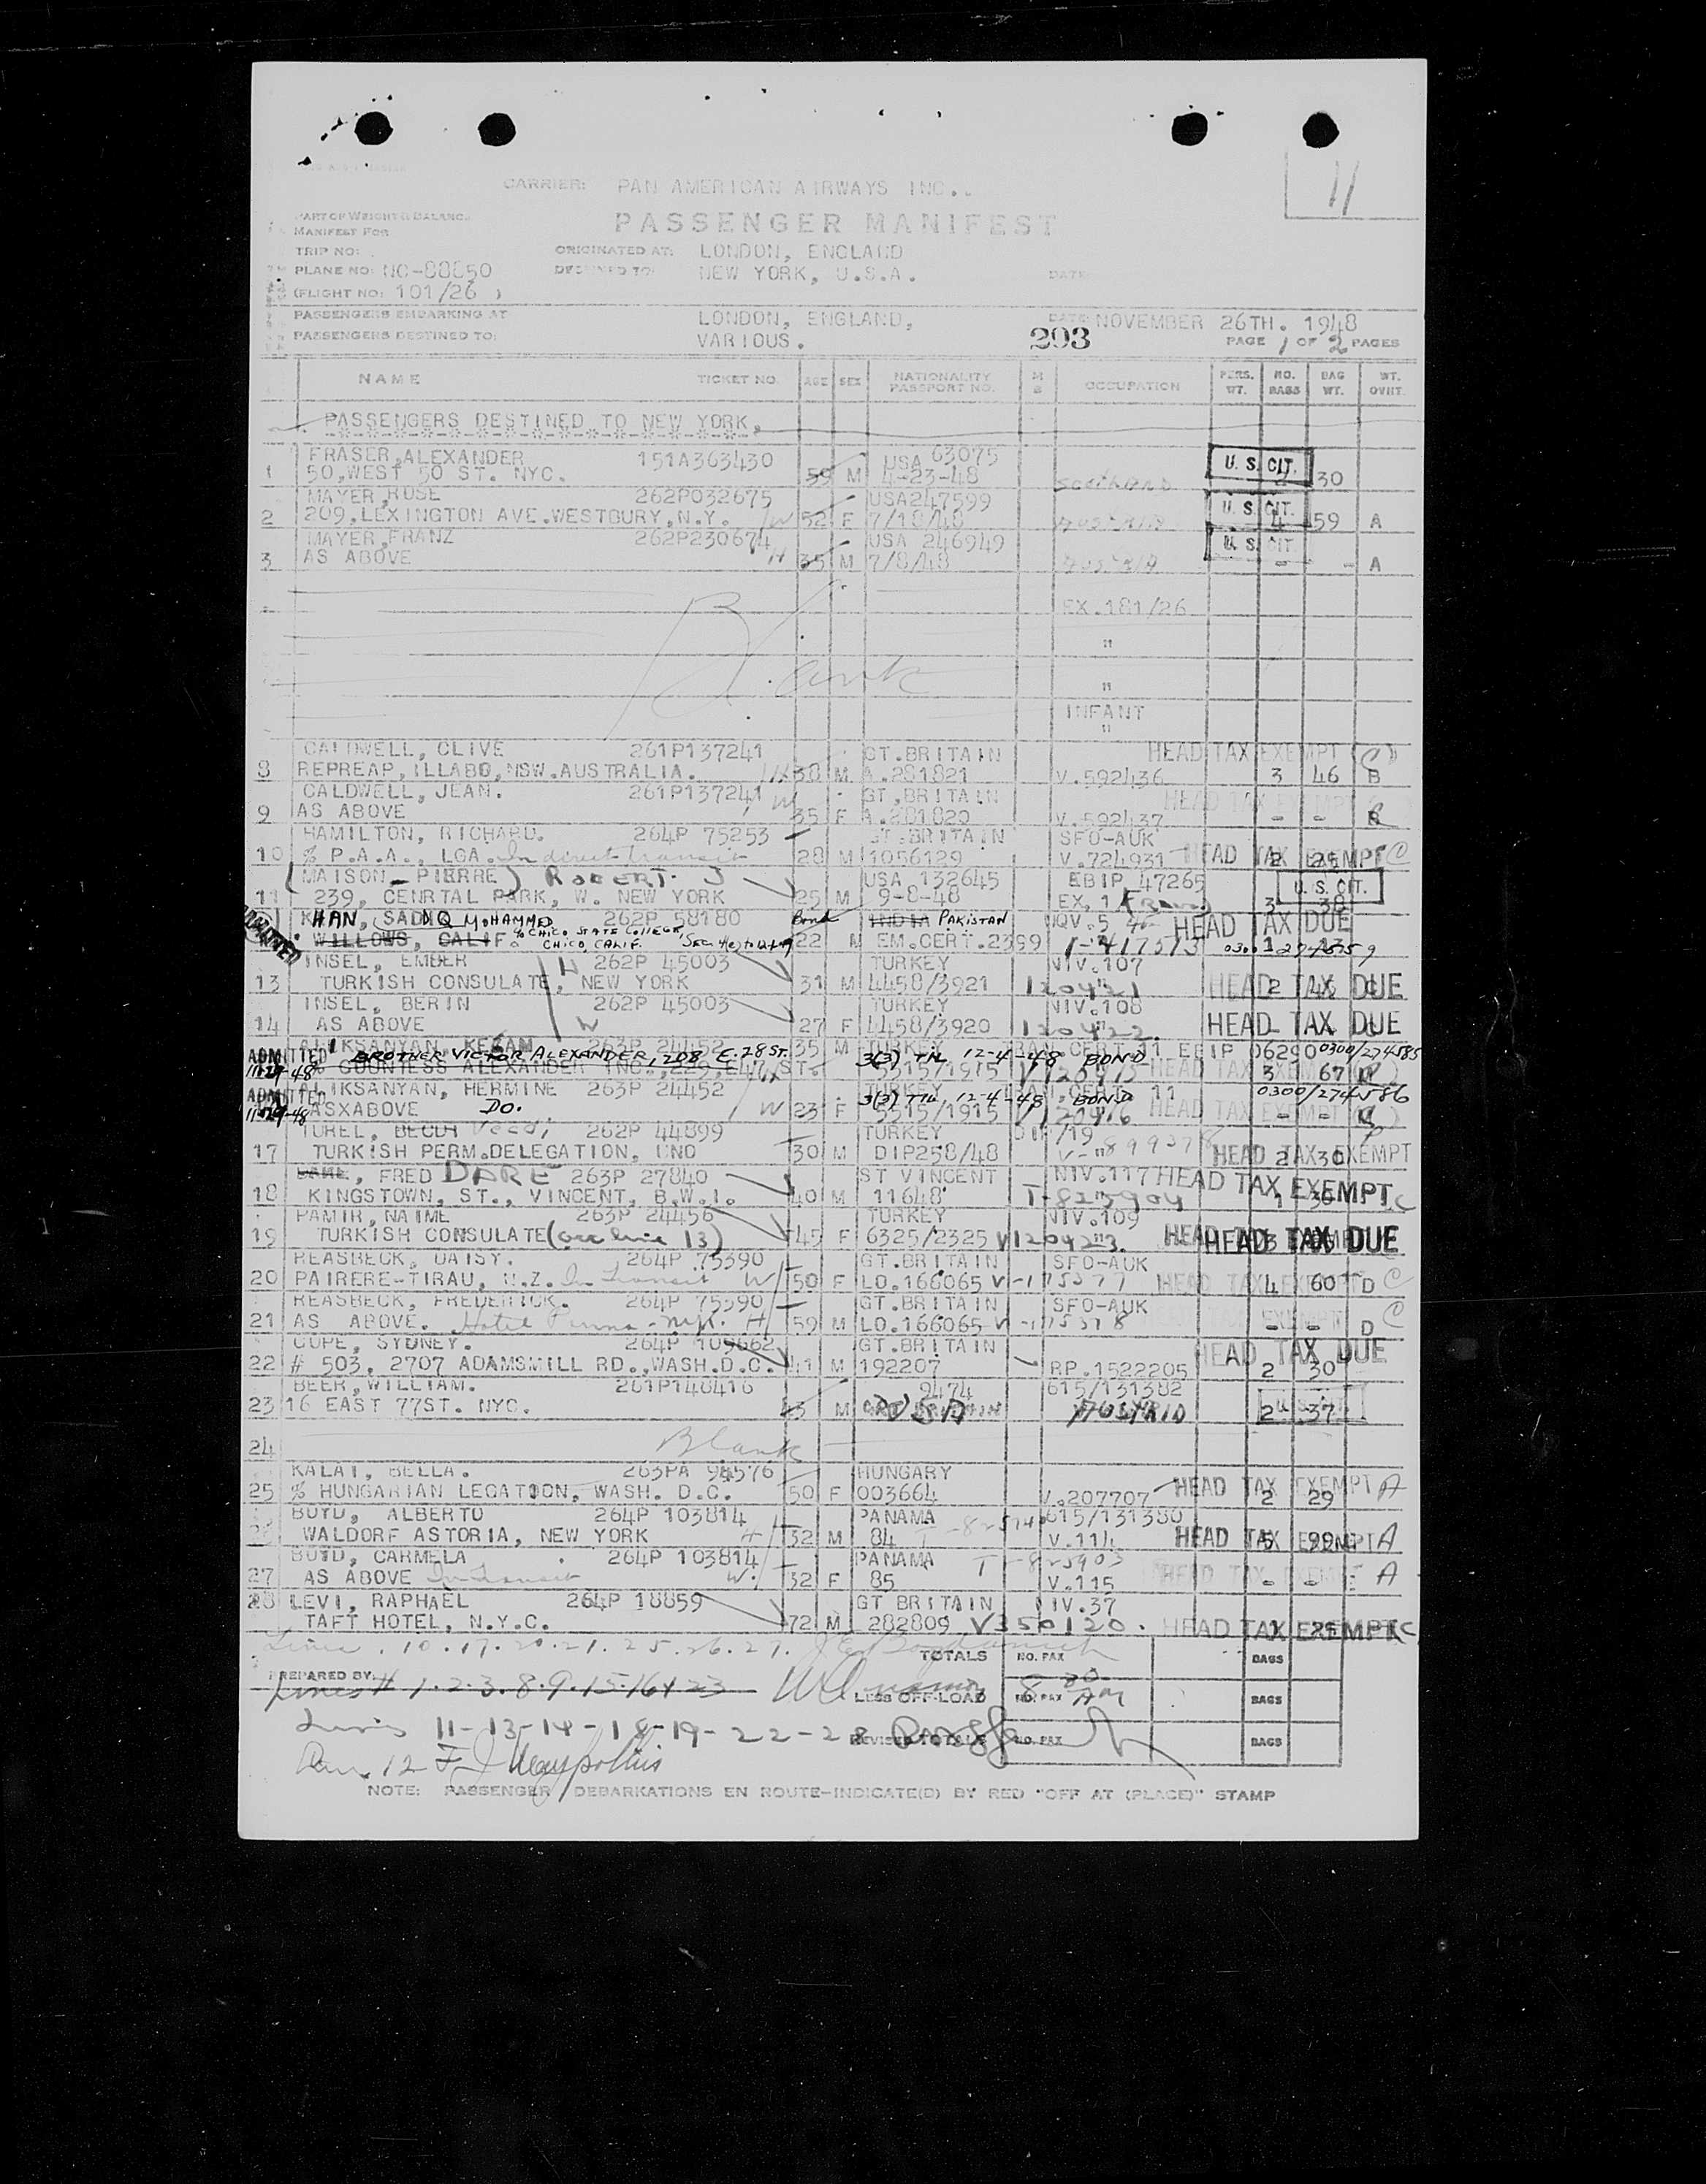 11
CARRIER: PAN AMERICAN AIRWAYS INC..
PART OF WEIGHT & BALANCE
MANIFEST FOR
PASSENGER MANIFEST
TRIP NO:
ORIGINATED AT: LONDON, ENGLAND
PLANE NO: NC-88850
DESTINED TO: NEW YORK, U.S.A.
DATE:
(FLIGHT NO: 101/26 )
PASSENGERS EMBARKING AT LONDON, ENGLAND, DATE: NOVEMBER 26TH. 1948
PASSENGERS DESTINED TO: VARIOUS. 203 PAGE 1 OF 2 PAGES
NAME TICKET NO. AGE SEX NATIONALITY PASSPORT NO. M S OCCUPATION PERS. WT. NO. BAGS BAG WT. WT. OVHT.
PASSENGERS DESTINED TO NEW YORK.
-*-*-*-*-*-*-*-*-*-*-*-*-*-*-*-
FRASER,ALEXANDER 151A363430 USA 63075 U. S. CIT.
1 50,WEST 50 ST. NYC. 59 M 4-23-48 30
MAYER,ROSE 262P032675 USA247599 U. S. CIT.
2 209,LEXINGTON AVE.WESTBURY,N.Y. W 52 F 7/18/48 4 59 A
MAYER,FRANZ 262P230674 USA 246949 U. S. CIT.
3 AS ABOVE H 35 M 7/8/48 - - A
EX.181/26
"
Blank
"
INFANT
"
CALDWELL, CLIVE 261P137241 GT.BRITAIN HEAD TAX EXEMPT
8 REPREAP,ILLABO,NSW.AUSTRALIA. H 38 M A.281821 V.592436 3 46 B
CALDWELL, JEAN. 261P137241 W GT.BRITAIN HEAD TAX EXEMPT
9 AS ABOVE 35 F A.281820 V.592437 - - B
HAMILTON, RICHARD. 264P 75253 GT.BRITAIN SFO-AUK
10 % P.A.A., LGA. In direct transit 28 M 1056129 V.724931 HEAD TAX EXEMPT C
(MAISON-PIERRE) ROBERT. J USA 132645 EBIP 47265 U. S. CIT.
11 239, CENRTAL PARK, W. NEW YORK 25 M 9-8-48 EX. 1 3 38
KHAN, SADIQ MOHAMMED 262P 58180 Bond INDIA PAKISTAN NQV.5 HEAD TAX DUE
ADMITTED WILLOWS, CALIF. % CHICO STATE COLLEGE, CHICO, CALIF. 22 M EM.CERT.2399
INSEL, EMBER 262P 45003 TURKEY NIV.107
13 TURKISH CONSULATE, NEW YORK H 31 M 4458/3921 120421 HEAD TAX DUE
INSEL, BERIN 262P 45003 TURKEY NIV.108
14 AS ABOVE W 27 F 4458/3920 120422. HEAD TAX DUE
ALIKSANYAN, KEGAM 263P 24452 35 M TURKEY TRAN.CERT.11 EBIP 06290 0300/274585
ADMITTED 11-29-48 BROTHER VICTOR ALEXANDER, 208 E. 28 ST. 3(3) TIL 12-4-48 BOND
% COUNTESS ALEXANDER INC., ST. 5515/1915 HEAD TAX EXEMPT 3 67
ALIKSANYAN, HERMINE 263P 24452 TURKEY TRAN.CERT. 11 0300/274586
ADMITTED 11-29-48 3(3) TIL 12-4-48 BOND
ASXABOVE DO. W 23 F 5515/1915 HEAD TAX EXEMPT - -
TUREL, 262P 44899 TURKEY DIP/19
17 TURKISH PERM.DELEGATION, UNO 30 M DIP258/48 HEAD TAX EXEMPT 2 30
FRED DARE 263P 27840 ST VINCENT NIV.117 HEAD TAX EXEMPT
18 KINGSTOWN, ST., VINCENT, B.W.I. 40 M 11648 T-825904 1 30 C
PAMIR, NAIME 263P 24456 TURKEY NIV.109
19 TURKISH CONSULATE (see line 13) 45 F 6325/2325 V120423. HEAD TAX DUE
REASBECK, DAISY. 264P 75390 GT.BRITAIN SFO-AUK
20 PAIRERE-TIRAU, N.Z. In Transit W 50 F LO.166065 V-175377 HEAD TAX EXEMPT 4 60 D C
REASBECK, FREDERICK. 264P 75390 GT.BRITAIN SFO-AUK
21 AS ABOVE. Hotel Penna - N.Y. H 59 M LO.166065 V-175378 - - D C
COPE, SYDNEY. 264P 109662 GT.BRITAIN HEAD TAX DUE
22 # 503, 2707 ADAMSMILL RD.,WASH.D.C. 41 M 192207 RP.1522205 2 30
BEER,WILLIAM. 261P148416 9474 615/131382
23 16 EAST 77ST. NYC. M USA AUSTRIA 2 37
24 Blank
KALAI, BELLA. 263PA 94576 HUNGARY
25 % HUNGARIAN LEGATION, WASH. D.C. 50 F 003664 V.207707 HEAD TAX EXEMPT 2 29 A
BOYD, ALBERTO 264P 103814 PANAMA 615/131380
26 WALDORF ASTORIA, NEW YORK H 32 M 84 V.114 HEAD TAX EXEMPT A
BOYD, CARMELA 264P 103814 PANAMA T-825903
27 AS ABOVE In Transit W 32 F 85 V.115 HEAD TAX EXEMPT - - A
28 LEVI, RAPHAEL 264P 18859 GT BRITAIN NIV.37
TAFT HOTEL, N.Y.C. 72 M 282809 V350120. HEAD TAX EXEMPT C
Lines. 10. 17. 20. 21. 25. 26. 27. TOTALS NO. PAX BAGS
PREPARED BY:
Lines # 1. 2. 3. 8. 9. 15. 16 & 23 LESS OFF-LOAD NO. PAX BAGS
Lines 11-13-14-18-19-22-28 REVISED TOTALS NO. PAX BAGS
NOTE: PASSENGER DEBARKATIONS EN ROUTE-INDICATE(D) BY RED "OFF AT (PLACE)" STAMP